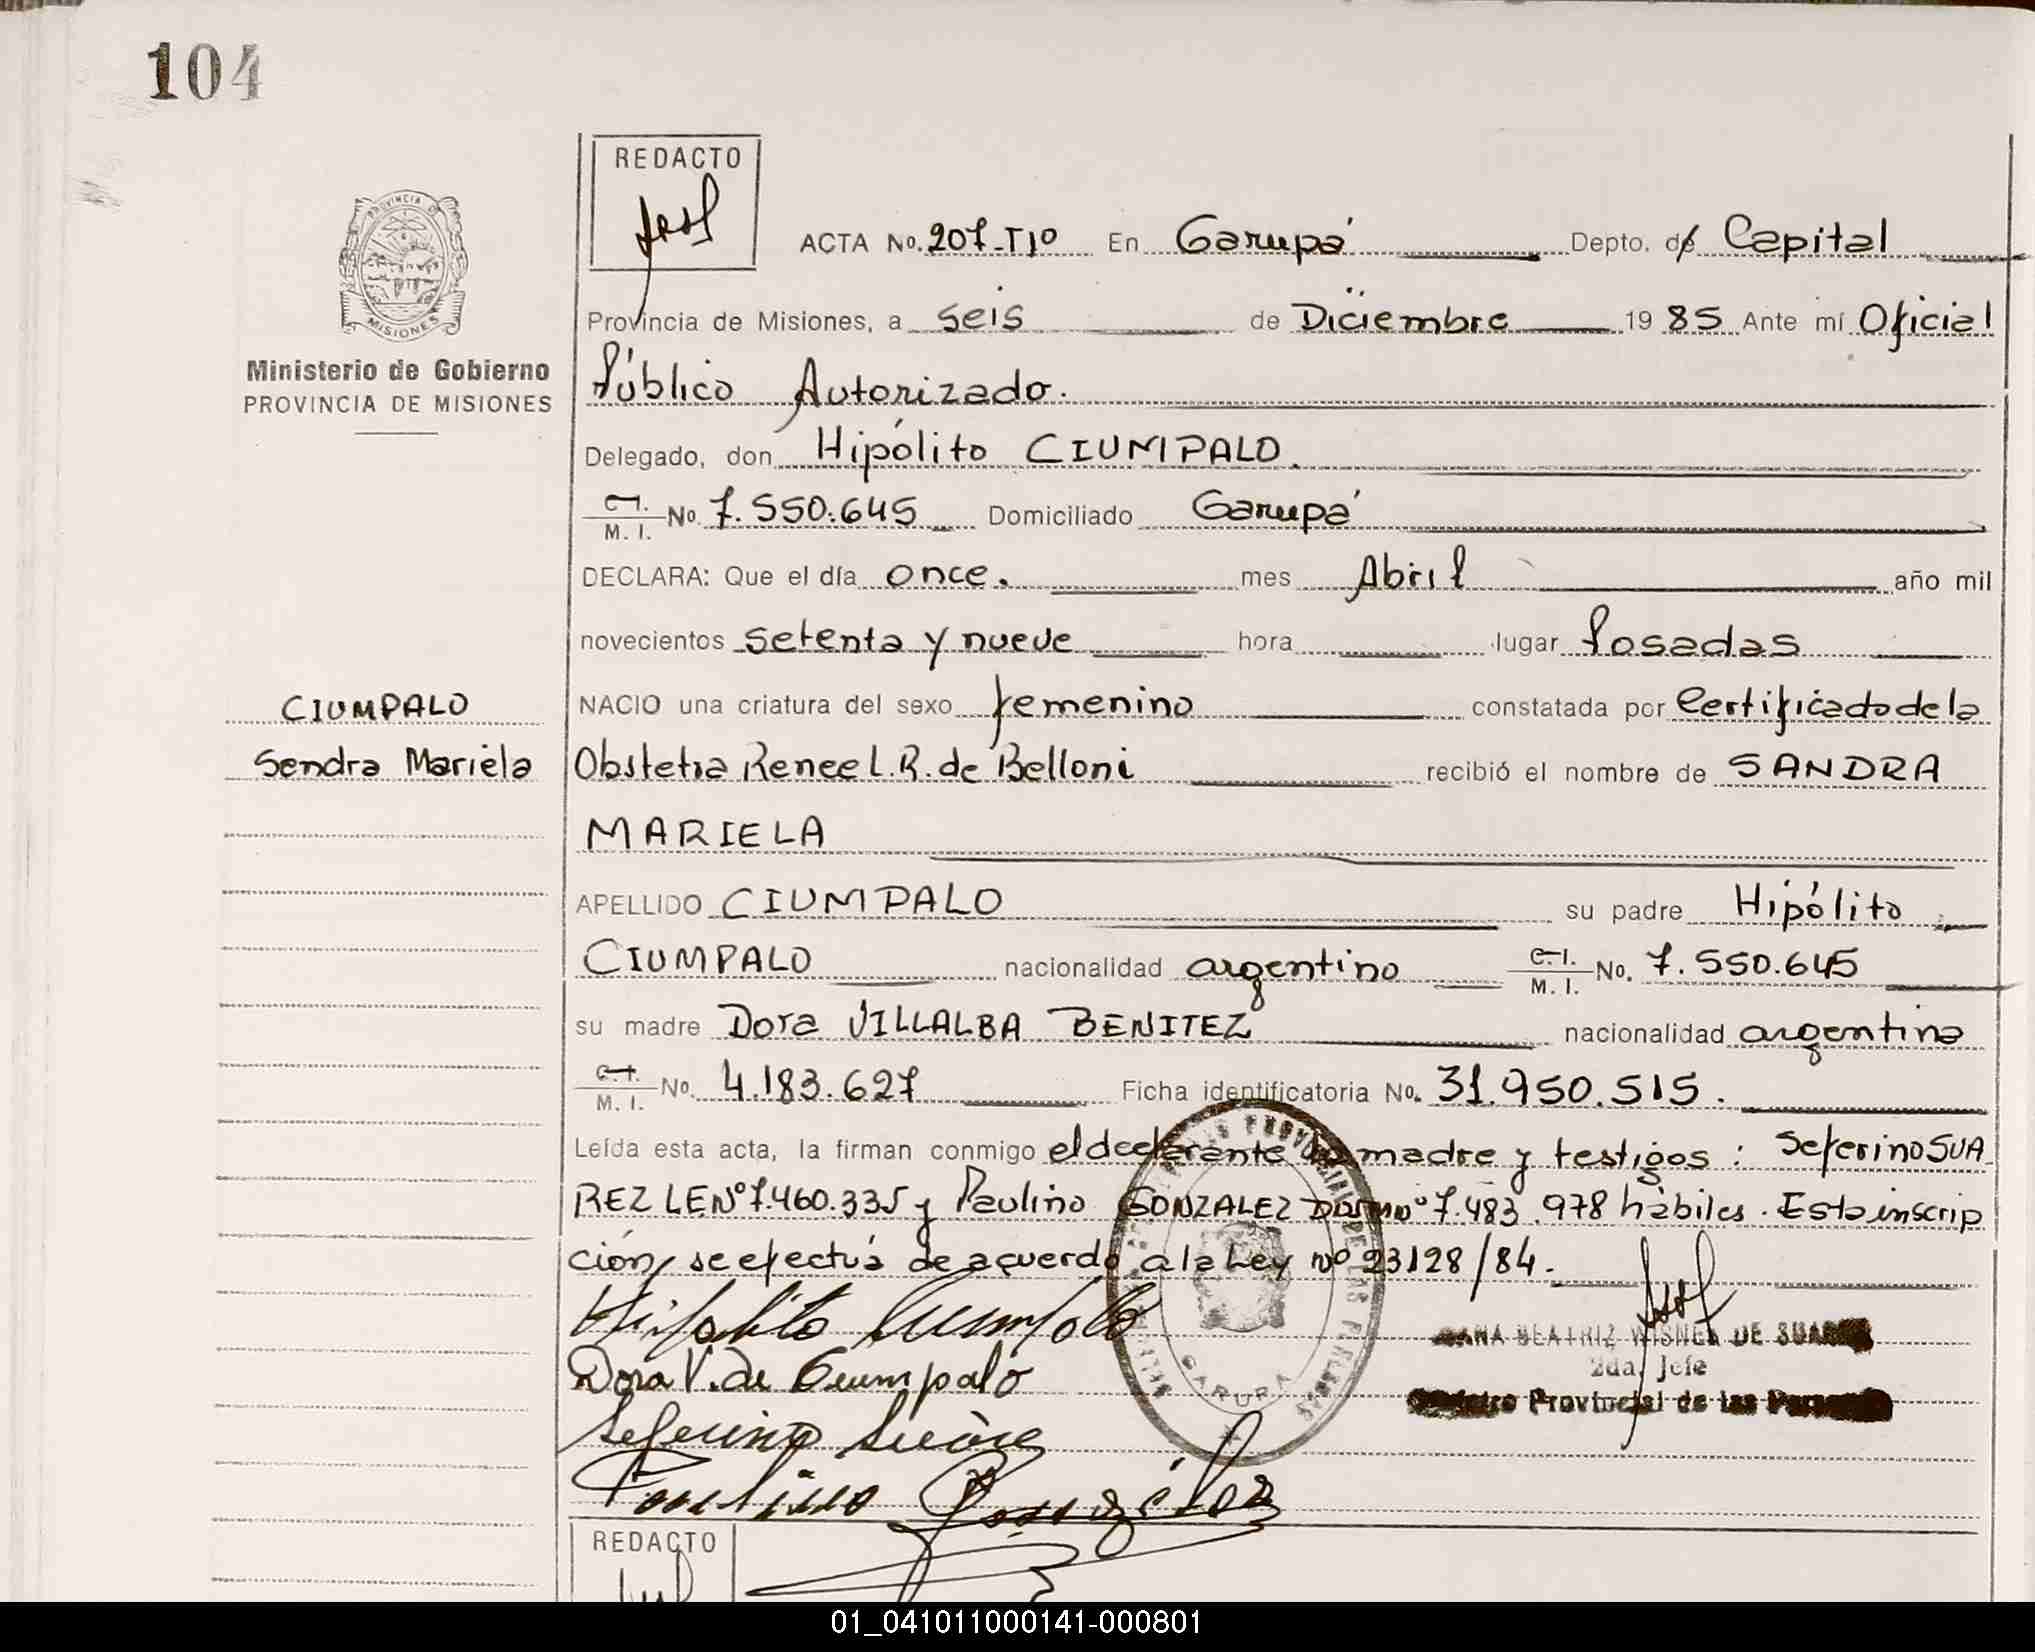 104
REDACTO
PROVINCIA DE
MISIONES
Ministerio de Gobierno
PROVINCIA DE MISIONES
ACTA No. 207-Tº En Garupá Depto. de Capital
Provincia de Misiones, a seis de Diciembre 1985 Ante mí Oficial
Público Autorizado.
Delegado, don Hipólito CIUMPALO.
C.I.
M. I. No. 7.550.645 Domiciliado Garupá
DECLARA: Que el día once. mes Abril año mil
novecientos setenta y nueve hora lugar Posadas
CIUMPALO
Sandra Mariela
NACIO una criatura del sexo femenino constatada por Certificado de la
Obstetra Renee L. R. de Belloni recibió el nombre de SANDRA
MARIELA
APELLIDO CIUMPALO su padre Hipólito
CIUMPALO nacionalidad argentino C.I.
M. I. No. 7.550.645
su madre Dora VILLALBA BENITEZ nacionalidad argentina
C.I.
M. I. No. 4.183.627 Ficha identificatoria No. 31.950.515.
Leída esta acta, la firman conmigo el declarante la madre y testigos: Seferino SUA
REZ LE Nº 7.460.335 y Paulino GONZALEZ Nº 7.483.978 hábiles. Esta inscrip
ción, se efectuá de acuerdo a la Ley Nº 23128/84.
Hipolito Ciumpalo
Dora V. de Ciumpalo
Seferino Suáre
Paulino González
GARUPA
BEATRIZ WISNER DE SUAREZ
2da. Jefe
Registro Provincial de las Personas
REDACTO
01_041011000141-000801